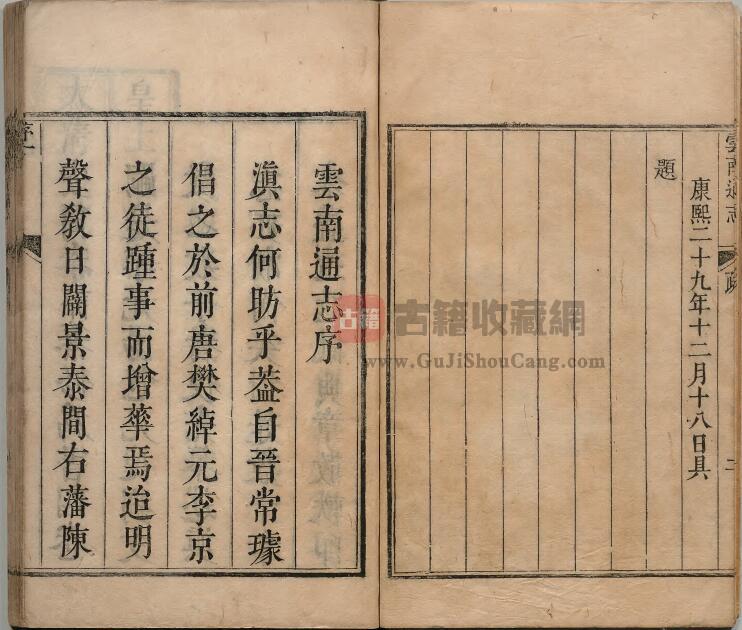 雲南通志
疏
二
康熙二十九年十二月十八日具
題
雲南通志序
滇志何昉乎葢自晉常璩
倡之於前唐樊綽元李京
之徒踵事而增華焉迨明
聲敎日闢景泰間右藩陳
序一
古籍
古籍收藏網
www.GuJiShouCang.com